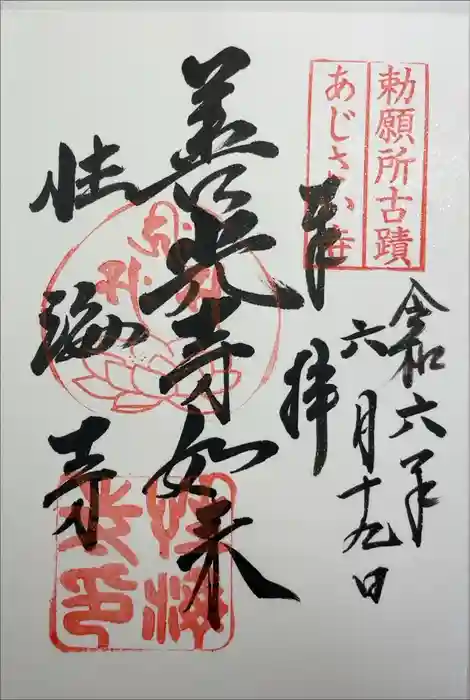 勅願所古蹟
あじさい荘
奉拝
令和六年
六月十九日
善光寺如来
性海寺